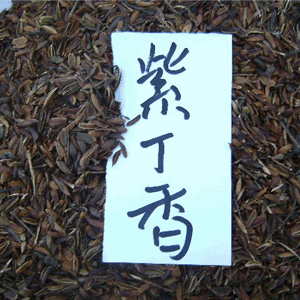 紫丁香